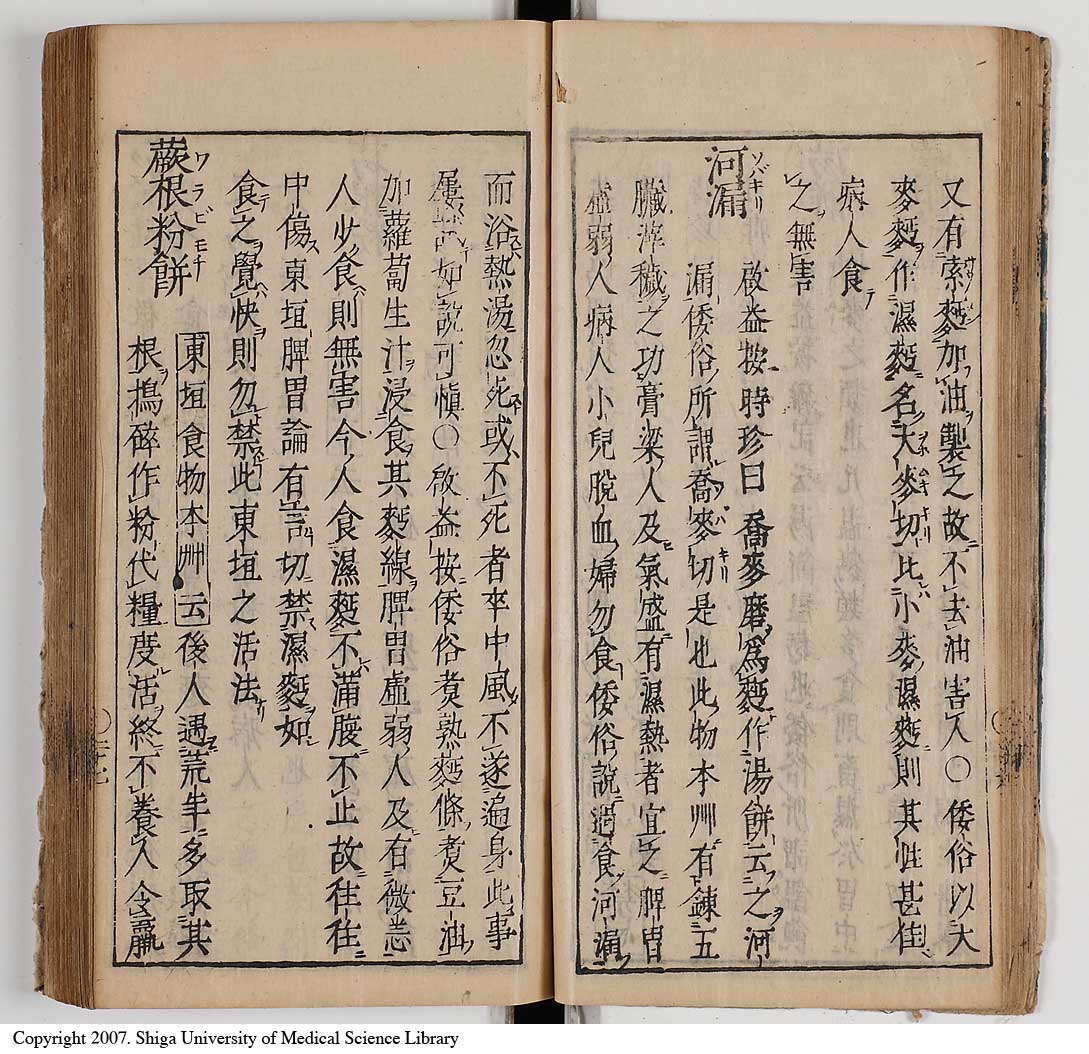 又有索麪加油製之故不去油害人〇倭俗以大
麥麪作濕麪名大麥切比小麥濕麪則其性甚佳
病人食
之無害
河漏
啟益按時珍曰喬麥磨爲麪作湯餅云之河
漏倭俗所謂喬麥切是也此物本艸有錬五
臓滓穢之功膏粱人及氣盛有濕熱者宜之脾胃
虛弱人病人小兒脫血婦勿食倭俗說過食河漏
而浴熱湯忽死或不死者卒中風不遂遍身此事
如說可愼〇啟益按倭俗煑熟麪條煑豆油
加蘿蔔生汁浸食其麪線脾胃虛弱人及有微恙
人少食則無害今人食濕麪不滿腹不止故往往
中傷東垣脾胃論有言切禁濕麪如
食之覺快則勿禁此東垣之活法
蕨根粉餅
東垣食物本艸云後人遇荒年多取其
根搗碎作粉代糧度活終不養人令羸
ソバキリ
ワラビモチ
Copyright 2007. Shiga University of Medical Science Library